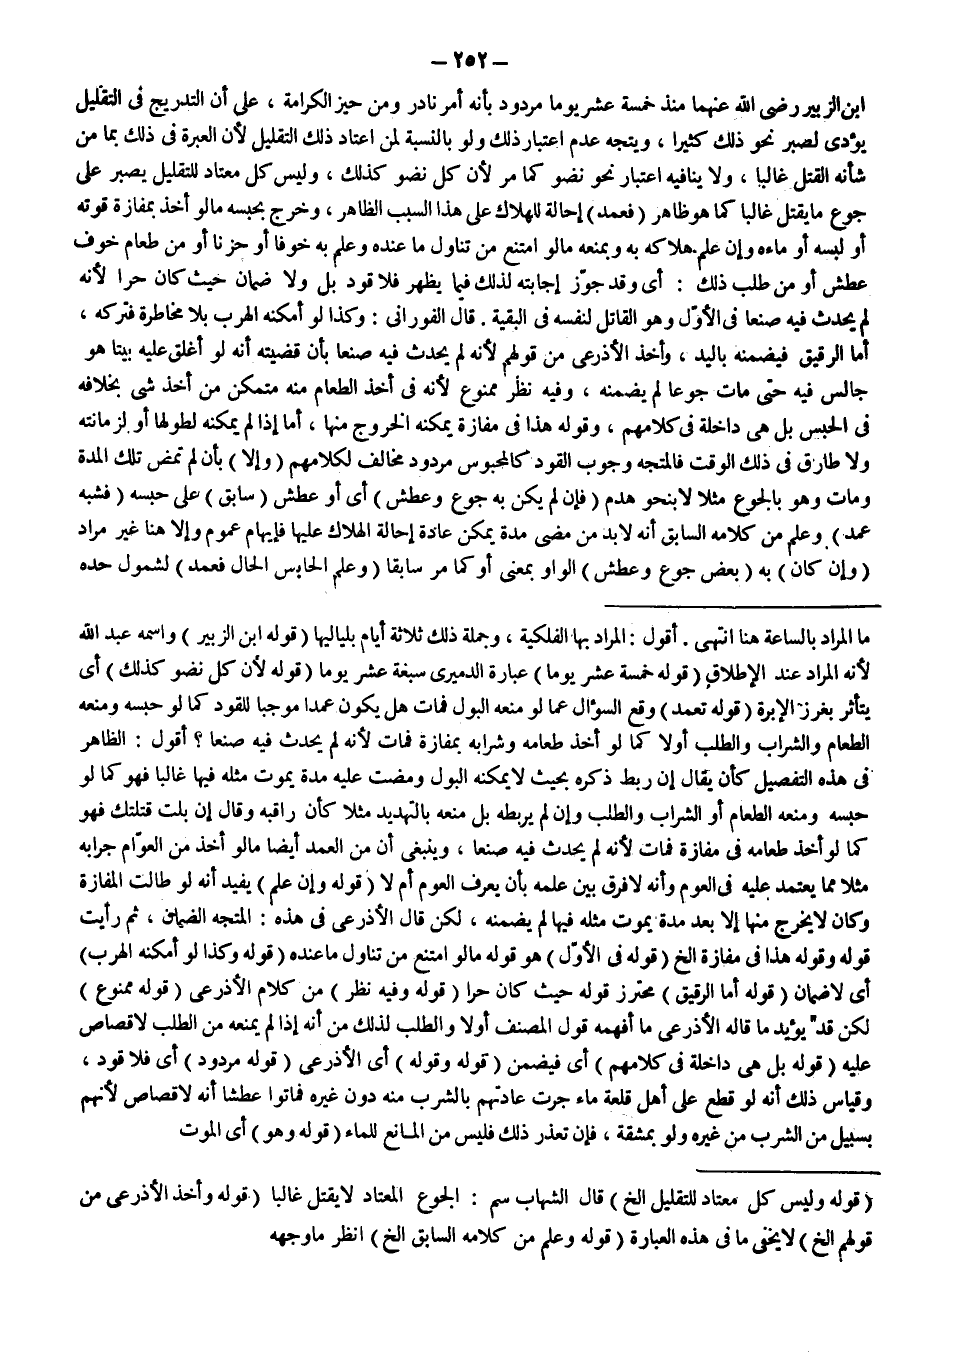 – ٢٥٢ –
ابن الزبير رضى الله عنهما منذ خمسة عشر يوما مردود بأنه أمر نادر ومن حيز الكرامة ، على أن التدريج فى التقليل
يؤدى لصبر نحو ذلك كثيرا ، ويتجه عدم اعتبار ذلك ولو بالنسبة لمن اعتاد ذلك التقليل لأن العبرة فى ذلك بما من
شأنه القتل غالبا ، ولا ينافيه اعتبار نحو نضو كما مر لأن كل نضو كذلك ، وليس كل معتاد للتقليل يصبر على
جوع مايقتل غالبا كما هو ظاهر ( فعمد ) إحالة للهلاك على هذا السبب الظاهر ، وخرج بحبسه مالو أخذ بمفازة قوته
أو لبسه أو ماءه وإن علم هلاكه به وبمنعه مالو امتنع من تناول ما عنده وعلم به خوفا أو حزنا أو من طعام خوف
عطش أو من طلب ذلك : أى وقد جوّز إجابته لذلك فيما يظهر فلا قود بل ولا ضمان حيث كان حرا لأنه
لم يحدث فيه صنعا فى الأوّل وهو القاتل لنفسه فى البقية . قال الفورانى : وكذا لو أمكنه الهرب بلا مخاطرة فتركه ،
أما الرقيق فيضمنه باليد ، وأخذ الأذرعى من قولهم لأنه لم يحدث فيه صنعا بأن قضيته أنه لو أغلق عليه بيتا هو
جالس فيه حتى مات جوعا لم يضمنه ، وفيه نظر ممنوع لأنه فى أخذ الطعام منه متمكن من أخذ شى بخلافه
فى الحبس بل هى داخلة فى كلامهم ، وقوله هذا فى مفازة يمكنه الخروج منها ، أما إذا لم يمكنه لطولها أو لزمانته
ولا طارق فى ذلك الوقت فالمتجه وجوب القود كالمحبوس مردود مخالف لكلامهم ( وإلا ) بأن لم تمض تلك المدة
ومات وهو بالجوع مثلا لابنحو هدم ( فإن لم يكن به جوع وعطش ) أى أو عطش ( سابق ) على حبسه ( فشبه
عمد ) وعلم من كلامه السابق أنه لابد من مضى مدة يمكن عادة إحالة الهلاك عليها فإيهام عموم وإلا هنا غير مراد
( وإن كان ) به ( بعض جوع وعطش ) الواو بمعنى أو كما مر سابقا ( وعلم الحابس الحال فعمد ) لشمول حده
ما المراد بالساعة هنا انتهى . أقول : المراد بها الفلكية ، وجملة ذلك ثلاثة أيام بلياليها ( قوله ابن الزبير ) واسمه عبد الله
لأنه المراد عند الإطلاق ( قوله خمسة عشر يوما ) عبارة الدميرى سبعة عشر يوما ( قوله لأن كل نضو كذلك ) أى
يتأثر بغرز الإبرة ( قوله تعمد ) وقع السؤال عما لو منعه البول فمات هل يكون عمدا موجبا للقود كما لو حبسه ومنعه
الطعام والشراب والطلب أولا كما لو أخذ طعامه وشرابه بمفازة فمات لأنه لم يحدث فيه صنعا ؟ أقول : الظاهر
فى هذه التفصيل كأن يقال إن ربط ذكره بحيث لايمكنه البول ومضت عليه مدة يموت مثله فيها غالبا فهو كما لو
حبسه ومنعه الطعام أو الشراب والطلب وإن لم يربطه بل منعه بالتهديد مثلا كأن راقبه وقال إن بلت قتلتك فهو
كما لو أخذ طعامه فى مفازة فمات لأنه لم يحدث فيه صنعا ، وينبغى أن من العمد أيضا مالو أخذ من العوّام جرابه
مثلا مما يعتمد عليه فى العوم وأنه لافرق بين علمه بأن يعرف العوم أم لا ( قوله وإن علم ) يفيد أنه لو طالت المفازة
وكان لايخرج منها إلا بعد مدة يموت مثله فيها لم يضمنه ، لكن قال الأذرعى فى هذه : المتجه الضمان ، ثم رأيت
قوله وقوله هذا فى مفازة الخ ( قوله فى الأوّل ) هو قوله مالو امتنع من تناول ماعنده ( قوله وكذا لو أمكنه الهرب )
أى لاضمان ( قوله أما الرقيق ) محترز قوله حيث كان حرا ( قوله وفيه نظر ) من كلام الأذرعى ( قوله ممنوع )
لكن قد يؤيد ما قاله الأذرعى ما أفهمه قول المصنف أولا والطلب لذلك من أنه إذا لم يمنعه من الطلب لاقصاص
عليه ( قوله بل هى داخلة فى كلامهم ) أى فيضمن ( قوله وقوله ) أى الأذرعى ( قوله مردود ) أى فلا قود ،
وقياس ذلك أنه لو قطع على أهل قلعة ماء جرت عادتهم بالشرب منه دون غيره فماتوا عطشا أنه لاقصاص لأنهم
بسبيل من الشرب من غيره ولو بمشقة ، فإن تعذر ذلك فليس من المانع للماء ( قوله وهو ) أى الموت
( قوله وليس كل معتاد للتقليل الخ ) قال الشهاب سم : الجوع المعتاد لايقتل غالبا ( قوله وأخذ الأذرعى من
قولهم الخ ) لايخفى ما فى هذه العبارة ( قوله وعلم من كلامه السابق الخ ) انظر ماوجهه